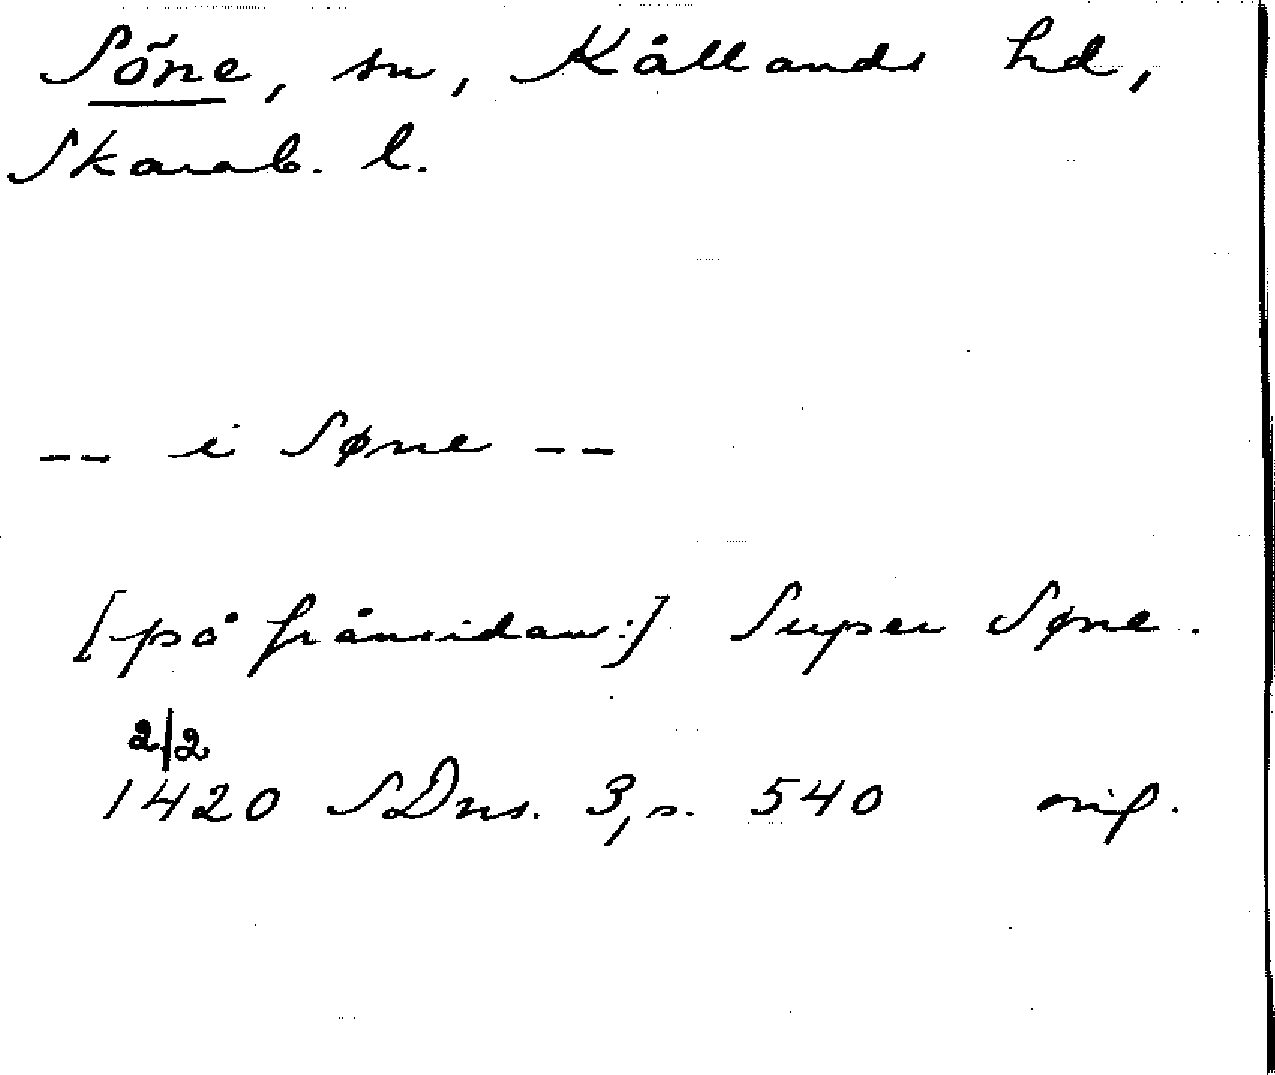 Söne, sn, Kållands hd,
Skarab. l.
-- i Søne --
[på frånsidan:] Super Søne.
2/2
1420 SDns. 3, s. 540 orig.